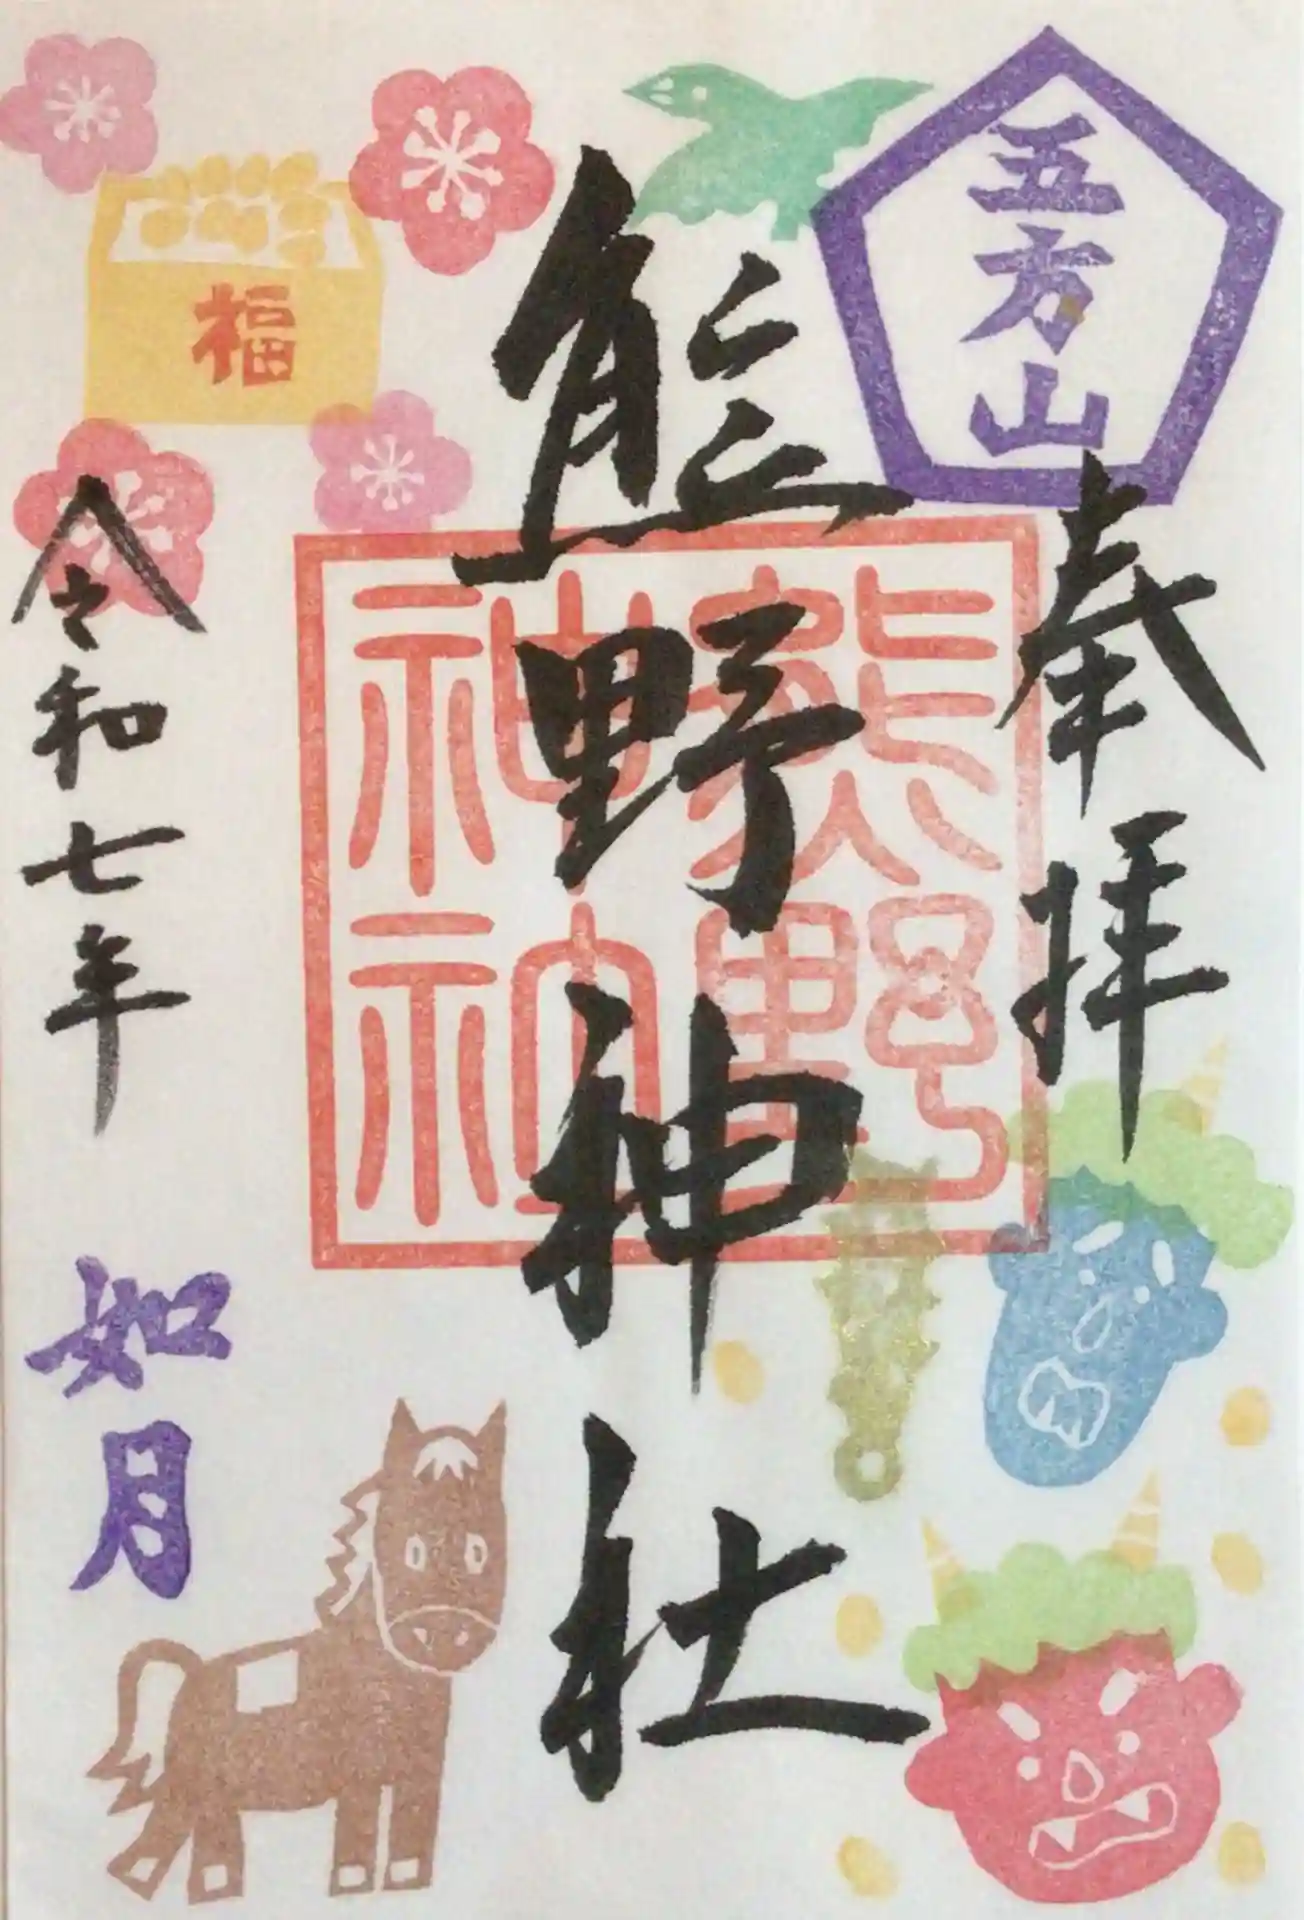 五方山
奉拝
熊野神社
熊野神社
福
令和七年
如月